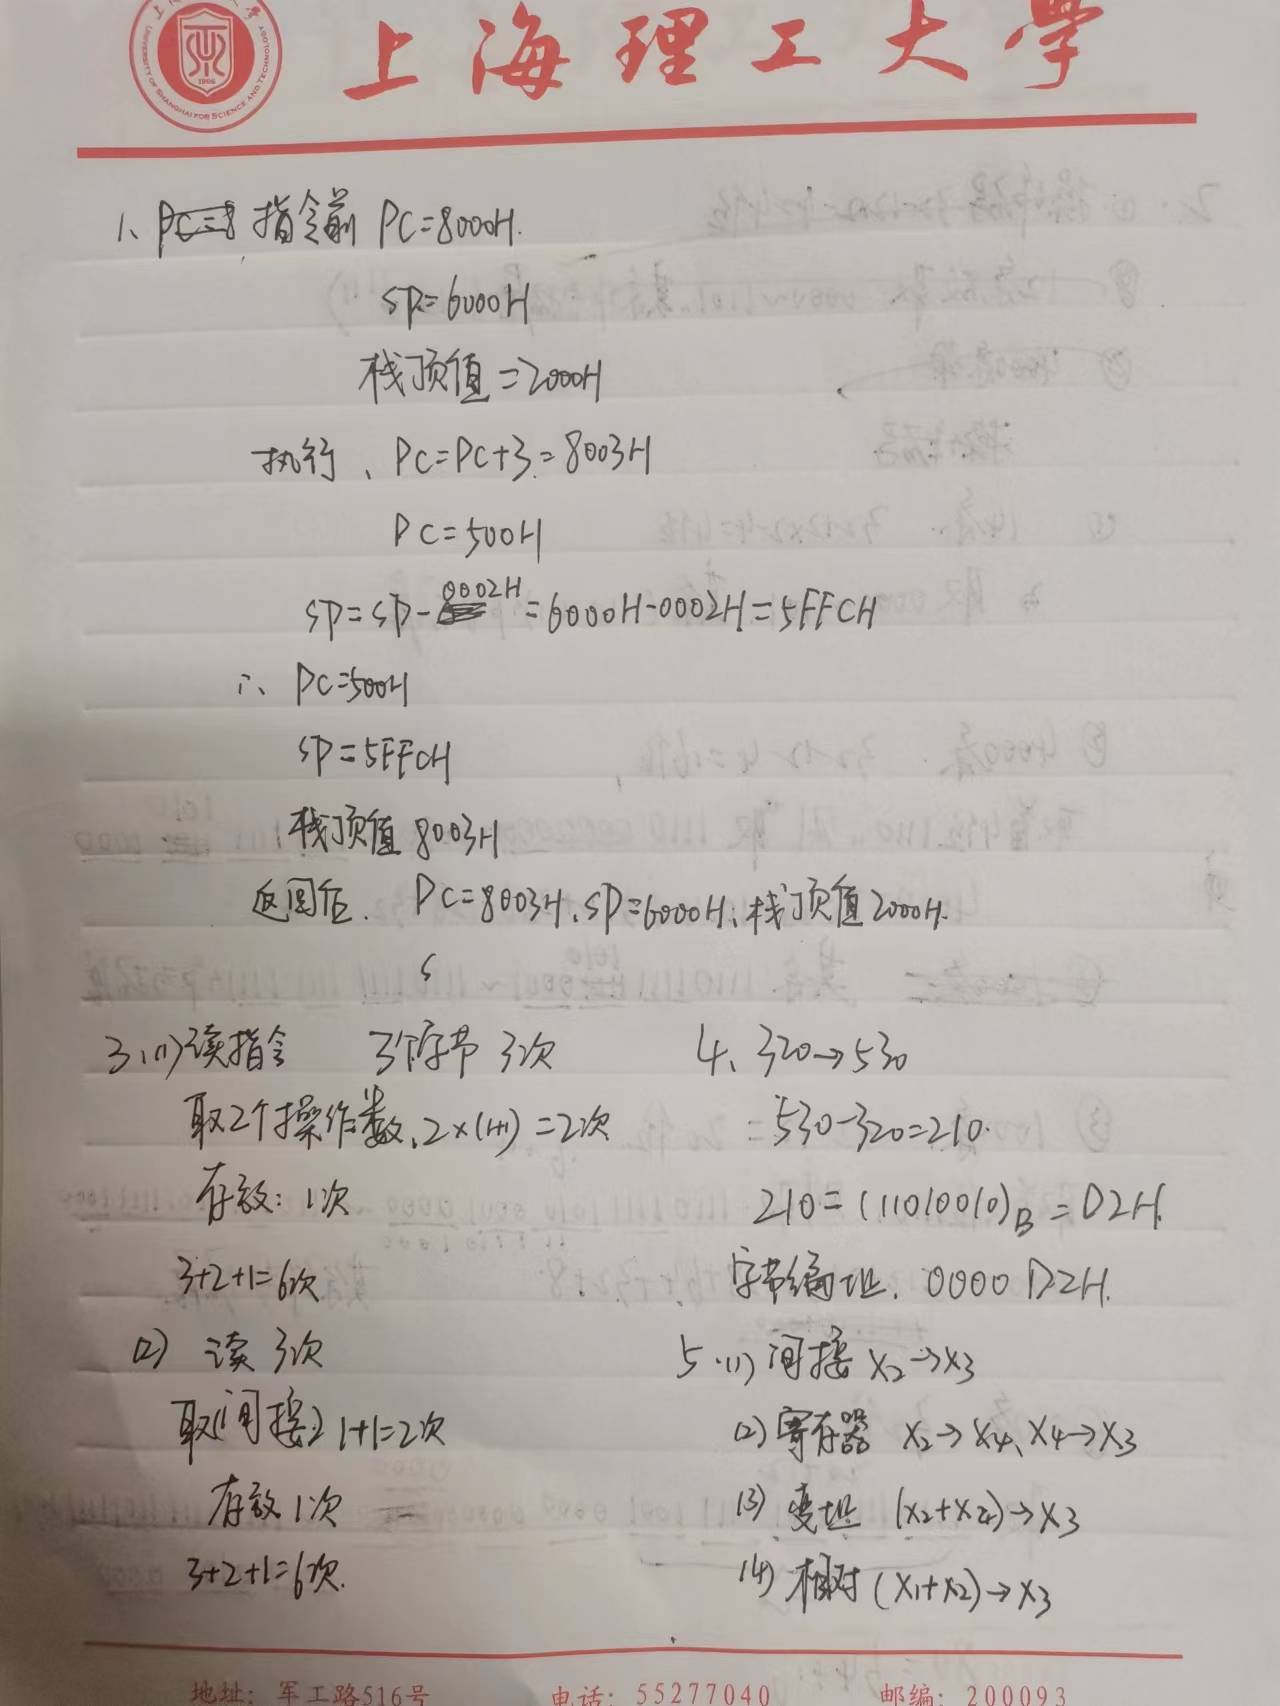 UNIVERSITY OF SHANGHAI FOR SCIENCE AND TECHNOLOGY
1906
上海理工大学
1、指令前 PC=8000H.
SP=6000H
栈顶值=2000H
执行、PC=PC+3=8003H
PC=500H
SP=SP-0002H=6000H-0002H=5FFCH
∴ PC=500H
SP=5FFCH
栈顶值 8003H
返回后. PC=8003H、SP=6000H、栈顶值 2000H.
S
3、(1) 读指令 3个字节 3次
取2个操作数、2×(1+1)=2次
存数: 1次
3+2+1=6次
(2) 读 3次
取(间接) 1+1=2次
存数 1次
3+2+1=6次.
4、320→530
530-320=210.
210=(11010010)B=D2H.
字节编址. 0000D2H.
5.(1) 间接 X2→X3
(2) 寄存器 X2→X4、X4→X3
(3) 变址 (X2+X4)→X3
(4) 相对 (X1+X2)→X3
地址: 军工路516号 电话: 55277040 邮编: 200093